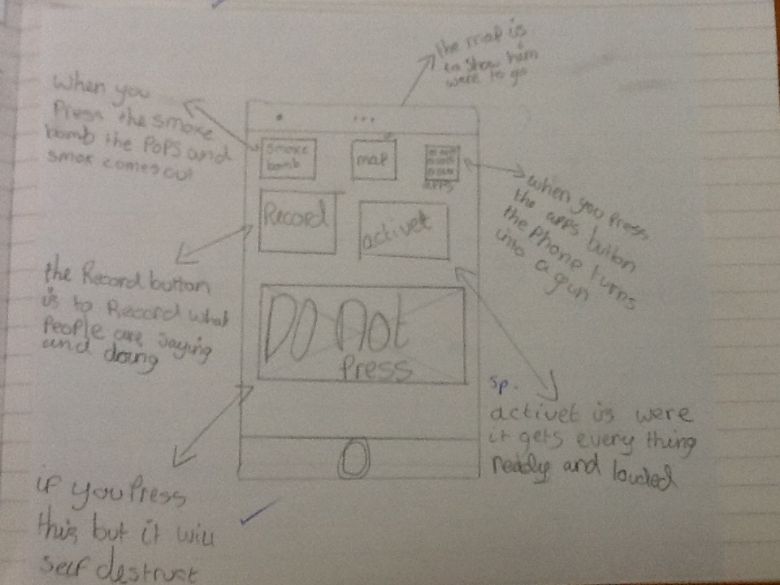 the map is
to show him
were to go
When you
Press the smoke
bomb the PoPs and
smok comes out
smoke
bomb
map
apps
when you press
the apps button
the phone turns
into a gun
Record
activet
the Record button
is to Record what
People are saying
and doing
DO Not
Press
sp.
activet is were
it gets every thing
readdy and louded
if you Press
this but it will
self destruct